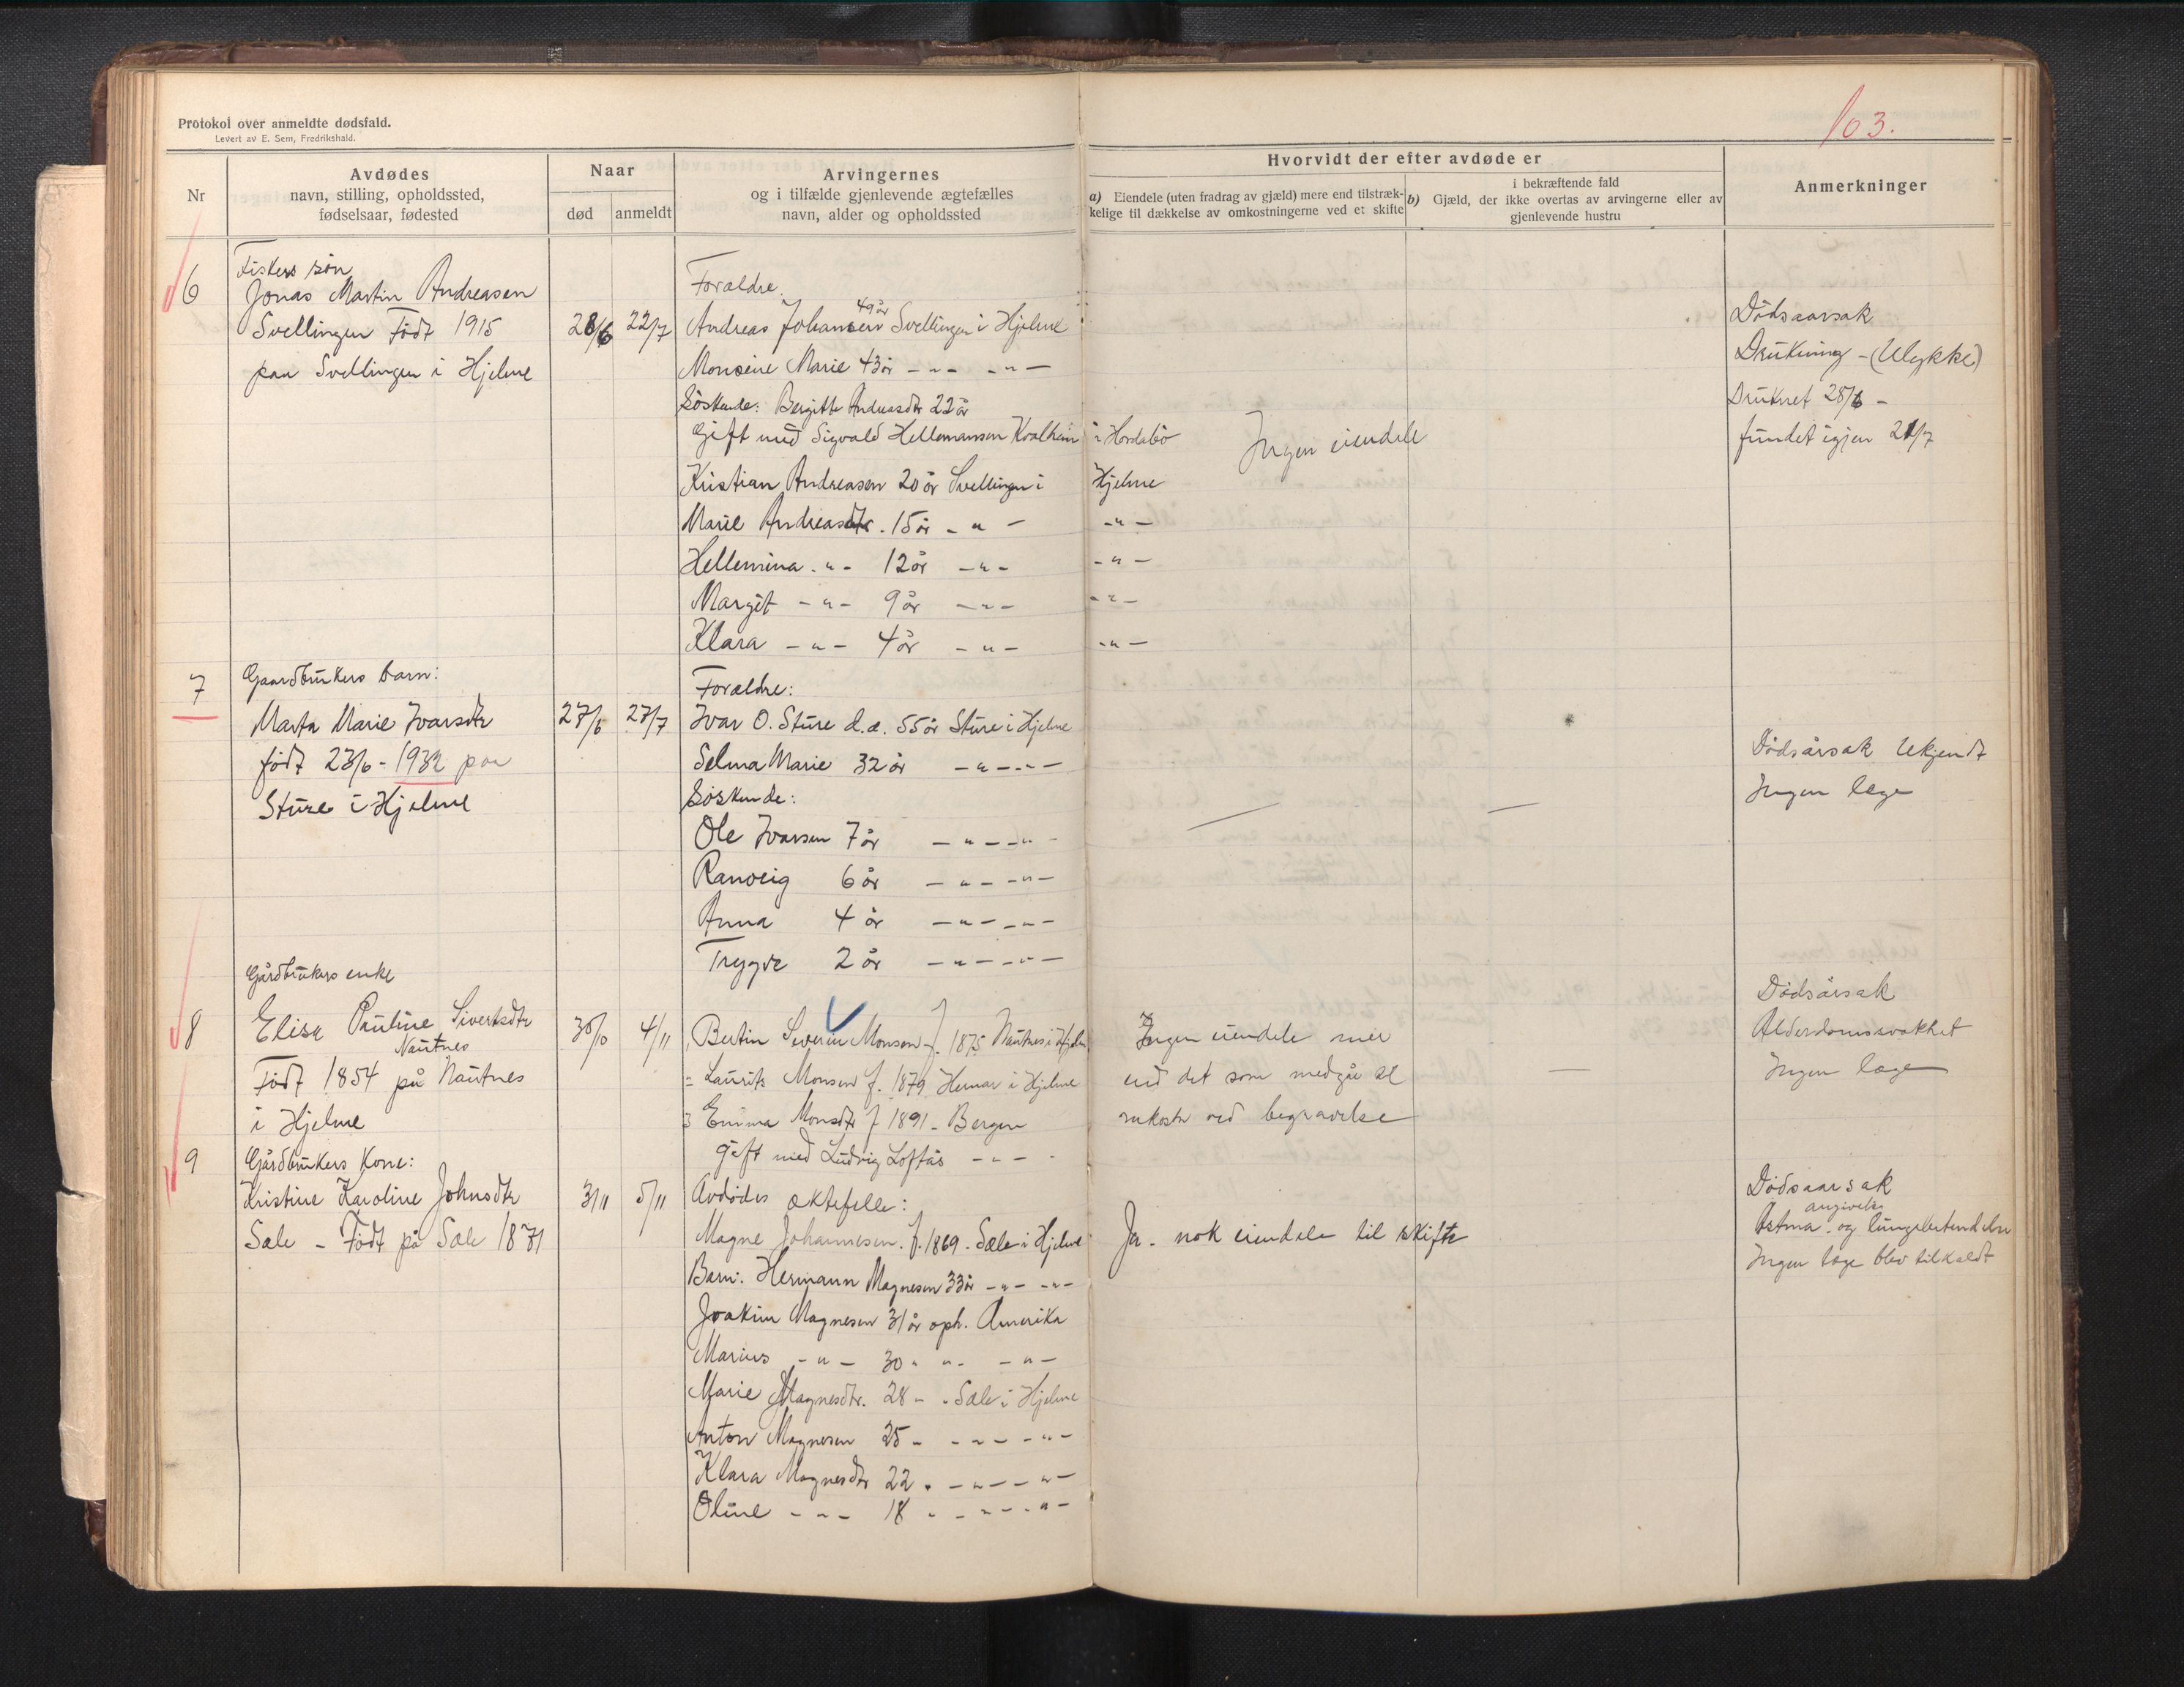 Protokol over anmeldte dødsfald.
Levert av E. Sem, Fredrikshald.
103.
Nr
Avdødes
navn, stilling, opholdssted,
fødselsaar, fødested
Naar
død
anmeldt
Arvingernes
og i tilfælde gjenlevende ægtefælles
navn, alder og opholdssted
Hvorvidt der efter avdøde er
a) Eiendele (uten fradrag av gjæld) mere end tilstræk-
kelige til dækkelse av omkostningerne ved et skifte
i bekræftende fald
b) Gjæld, der ikke overtas av arvingerne eller av
gjenlevende hustru
Anmerkninger
6
Fiskers søn
Jonas Martin Andreasen
Svellingen Født 1915
paa Svellingen i Hjelme
28/6 22/7
Forældre.
Andreas Johansen 49 år Svellingen i Hjelme
Monsine Marie 43 år -"- -"-
Søskende: Bergitte Andreasdtr 22 år
Gift med Sigvald Hellemansen Kvalheim i Hordabø
Kristian Andreasen 20 år Svellingen i Hjelme
Marie Andreasdtr. 15 år -"- -"-
Hellemina -"- 12 år -"- -"-
Margit -"- 9 år -"- -"-
Klara -"- 4 år -"- -"-
Ingen eiendele
Dødsaarsak
Drukning - (Ulykke)
Druknet 28/6 -
fundet igjen 21/7
7
Gaardbrukers barn:
Marta Marie Ivarsdtr
født 23/6 - 1932 paa
Sture i Hjelme
27/6 27/7
Forældre:
Ivar O. Sture d.æ. 55 år Sture i Hjelme
Selma Marie 32 år -"- -"-
Søskende:
Ole Ivarsen 7 år -"- -"-
Ranveig 6 år -"- -"-
Anna 4 år -"- -"-
Trygve 2 år -"- -"-
Dødsårsak Ukjendt
Ingen læge
8
Gårdbrukers enke
Elise Pauline Sivertsdtr
Nautnes
Født 1854 på Nautnes
i Hjelme
30/10 4/11
Bertin Severin Monsen f. 1875 Nautnes i Hjelm
2 Laurits Monsen f. 1879 Hernar i Hjelme
3 Emma Monsdtr f 1891 - Bergen
gift med Ludvig Loftås -"-
Ingen eiendele mer
end det som medgår til
omkostn ved begravelse
Dødsårsak
Alderdomssvakhet
Ingen læge
9
Gårdbrukers Kone:
Kristine Karoline Johnsdtr
Sæle - Født på Sæle 1871
3/11 5/11
Avdødes æktefelle:
Magne Johannesen. f. 1869. Sæle i Hjelme
Barn: Hermann Magnesen 33 år -"- -"-
Joakim Magnesen 31 år oph. Amerika
Marius -"- 30 " "- -"-
Marie Magnesdtr. 28 - " Sæle i Hjelme
Anton Magnesen 25 - -"- -"-
Klara Magnesdtr 22 " -"- -"-
Oline -"- 18 " -"- -"-
Ja - nok eiendele til skifte
Dødsaarsak
angivelig
Astma og lungebetendelse
Ingen læge blev tilkaldt